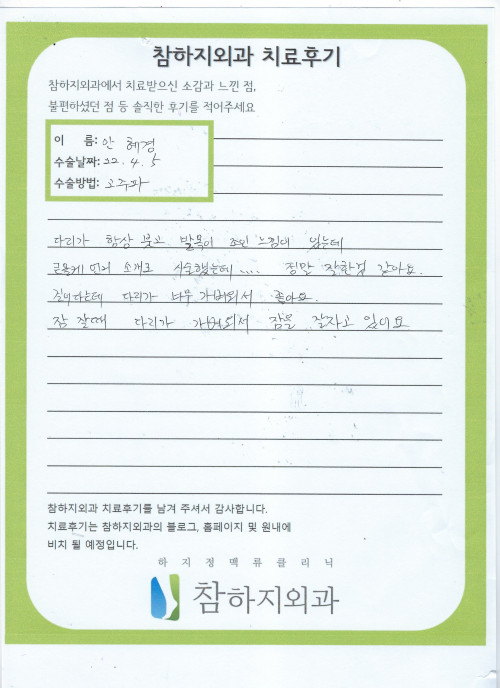 참하지외과 치료후기
참하지외과에서 치료받으신 소감과 느낀 점,
불편하셨던 점 등 솔직한 후기를 적어주세요
이 름: 안 혜경
수술날짜: 22. 4. 5
수술방법: 고주파
다리가 항상 붓고 발목이 조인 느낌이 있는데
언니 소개로 시술했는데.... 정말 잘한것 같아요.
다리가 너무 가벼워서 좋아요.
잠 잘때 다리가 가벼워서 잠을 잘자고 있어요
참하지외과 치료후기를 남겨 주셔서 감사합니다.
치료후기는 참하지외과의 블로그, 홈페이지 및 원내에
비치 될 예정입니다.
하지정맥류클리닉
참하지외과